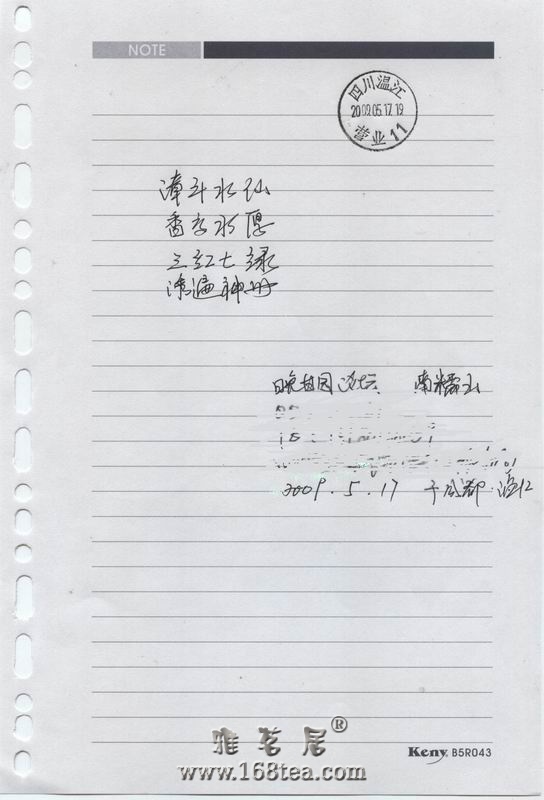 NOTE
四川温江
2009.05.17.19
11
漳平水仙
香高水厚
三红七绿
遍神州
晚甘园论坛 南糯山
2009.5.17 于成都·温江
雅茗居®
www.168tea.com
Keny B5R043